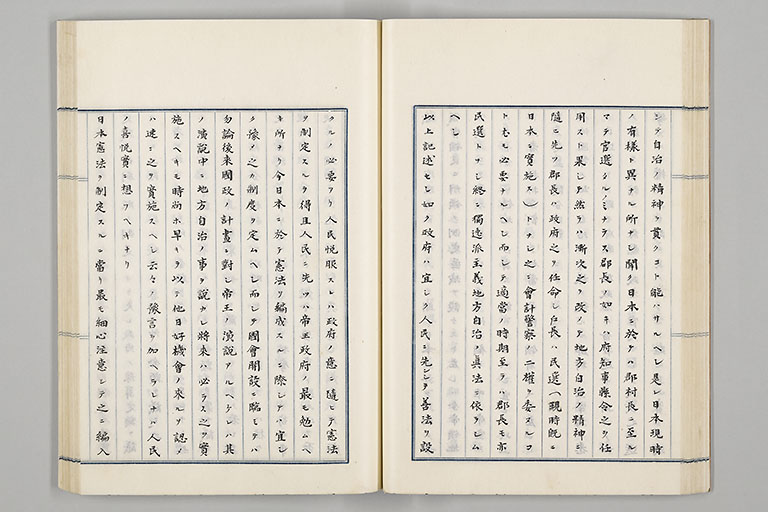 シテ自治ノ精神ヲ貫クコト能ハサルヘシ是レ日本現時
ノ有様ト異ナル所ナシ聞ク日本ニ於テハ郡村長ニ至ル
マテ官選タルノミナラス郡長ノ如キハ府知事縣令之ヲ任
用スト果シテ然ラハ漸次之ヲ改メテ地方自治ノ精神ニ
隨ヒ先ツ郡長ハ政府之ヲ任命シ戸長ハ民選(現時既ニ
日本ニ實施ス)トナシ之ニ會計警察ノ二權ヲ委スルコ
トモ必要ナルヘシ而シテ適當ノ時期至ラハ郡長モ亦
民選トナシ終ニ獨逸派主義地方自治ノ眞法ニ依ラシム
ヘシ
以上記述セシ如ク政府ハ宜シク人民ニ先ンテ善法ヲ設
クルノ必要アリ人民悦服スレハ政府ノ意ニ隨ヒテ憲法
ヲ制定スルヲ得且人民ニ先ツハ帝王政府ノ最モ勉ムヘ
キ所ナリ今日本ニ於テ憲法ヲ編成スルニ際シテハ宜シ
ク豫メ之カ制度ヲ定ムヘシ而シテ國會開設ニ臨ミテハ
勿論後来國政ノ計畫ニ對シ帝王ノ演説アルヘケレハ其
ノ演説中ニ地方自治ノ事ヲ説テシ將来ハ必ラス之ヲ實
施スヘキモ時尚ホ早キヲ以テ他日好機會ノ来ルヲ認メ
ハ速ニ之ヲ實施スヘシ云々ノ豫言ヲ加ヘラレナハ人民
ノ喜悦實ニ想フヘキナリ
日本憲法ヲ制定スルニ當リ最モ細心注意シテ之ニ編入